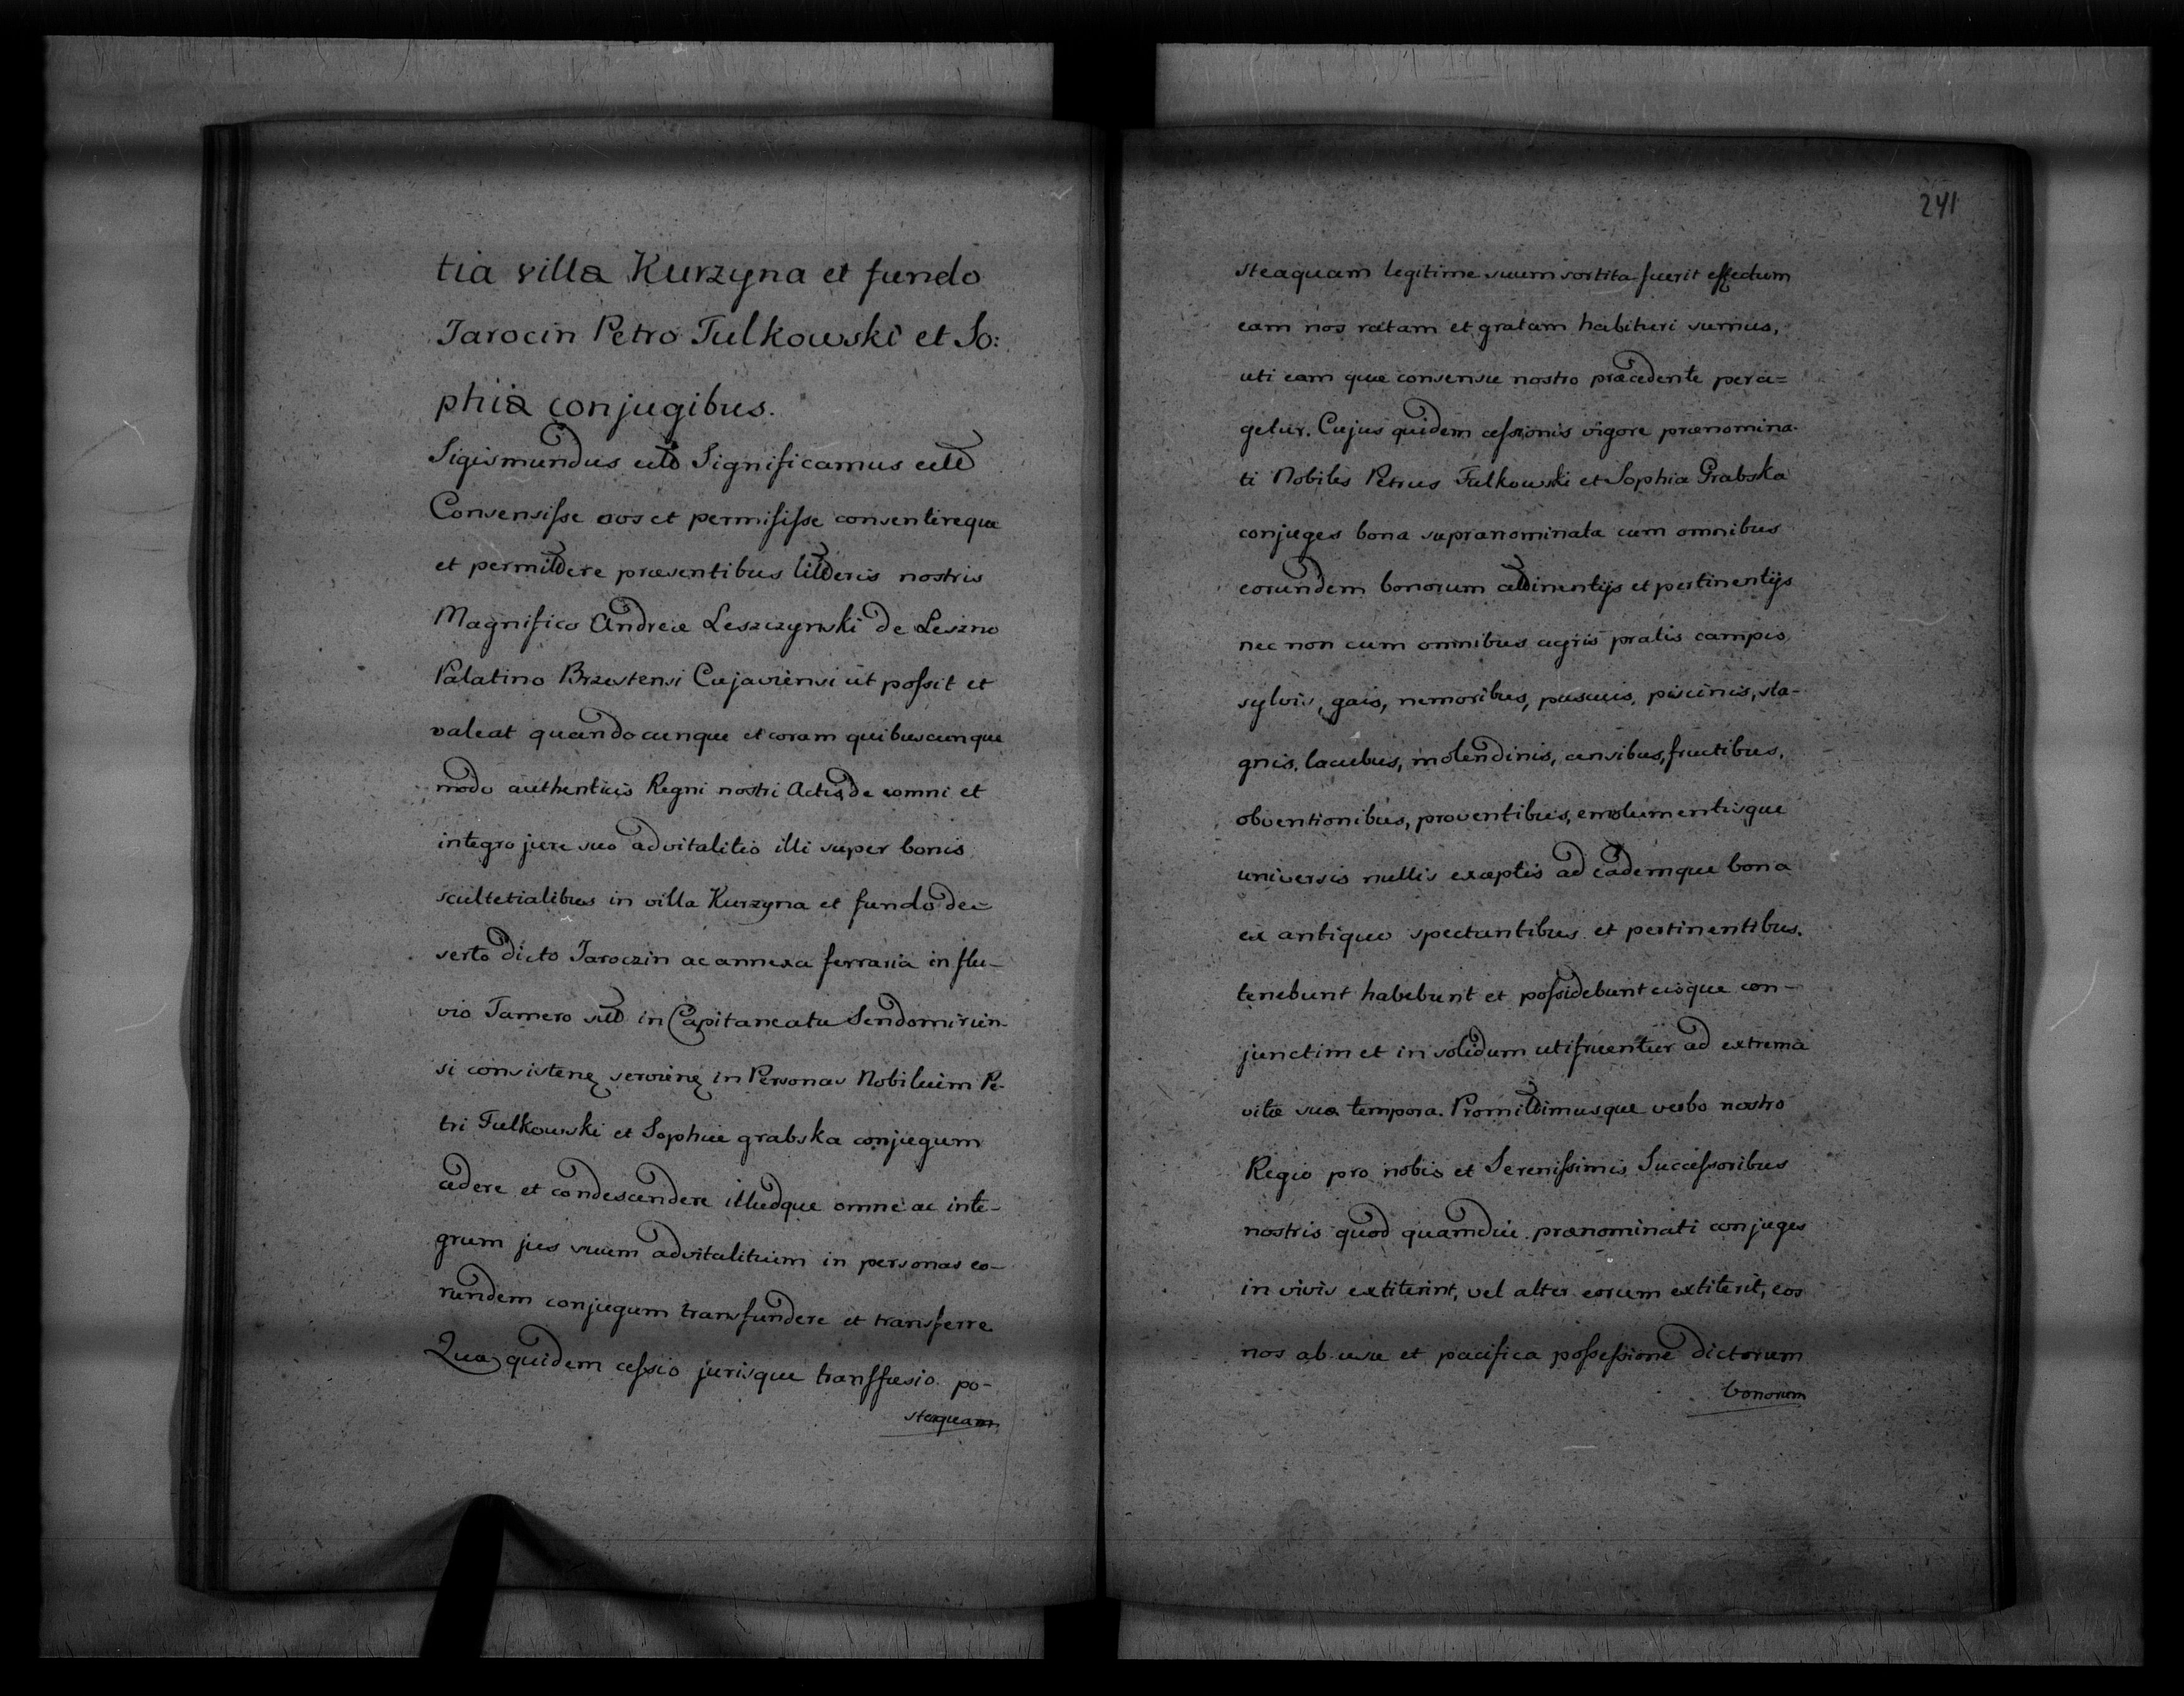 tia villæ Kurzyna et fundo
Jarocin Petro Fulkowski et So:
phiæ conjugibus.
Sigismundus ettc Significamus ettc
Consensisse nos et permisisse consentireque
et permittere præsentibus litteris nostris
Magnifico Andreæ Leszczynski de Leszno
Palatino Brzestensi Cujaviensi ut possit et
valeat quandocunque et coram quibuscunque
modo authenticis Regni nostri Actis de omni et
integro jure suo advitalitio illi super bonis
scultetialibus in villa Kurzyna et fundo de-
serto dicto Jaroczin ac annexa ferraria in flu-
vio Tamero sitto in Capitaneatu Sendomirien-
si consisten: servien: in Personas Nobilium Pe-
tri Fulkowski et Sophiæ grabska conjugum
cedere et condescendere illudque omne ac inte-
grum jus suum advitalitium in personas eo-
rundem conjugum transfundere et transferre
Quæ quidem cessio jurisque transfusio po-
steaquam
241
steaquam legitime suum sortita fuerit effectum
eam nos ratam et gratam habituri sumus,
uti eam quæ consensu nostro præcedente pera=
getur. Cujus quidem cessionis vigore prænomina-
ti Nobiles Petrus Fulkowski et Sophia Grabska
conjuges bona supranominata cum omnibus
eorundem bonorum attinentijs et pertinentijs
nec non cum omnibus agris pratis campis,
sylvis, gais, nemoribus, pascuis, piscinis, sta-
gnis, lacubus, molendinis, censibus, fructibus,
obventionibus, proventibus, emolumentisque
universis nullis exceptis ad eademque bona
ex antiquo spectantibus et pertinentibus.
tenebunt habebunt et possidebunt eisque con-
junctim et in solidum utifruentur ad extrema
vitæ suæ tempora. Promittimusque verbo nostro
Regio pro nobis et Serenissimis Successoribus
nostris quod quamdiu prænominati conjuges
in vivis extiterint, vel alter eorum extiterit, eos
nos ab usu et pacifica possessione dictorum
bonorum